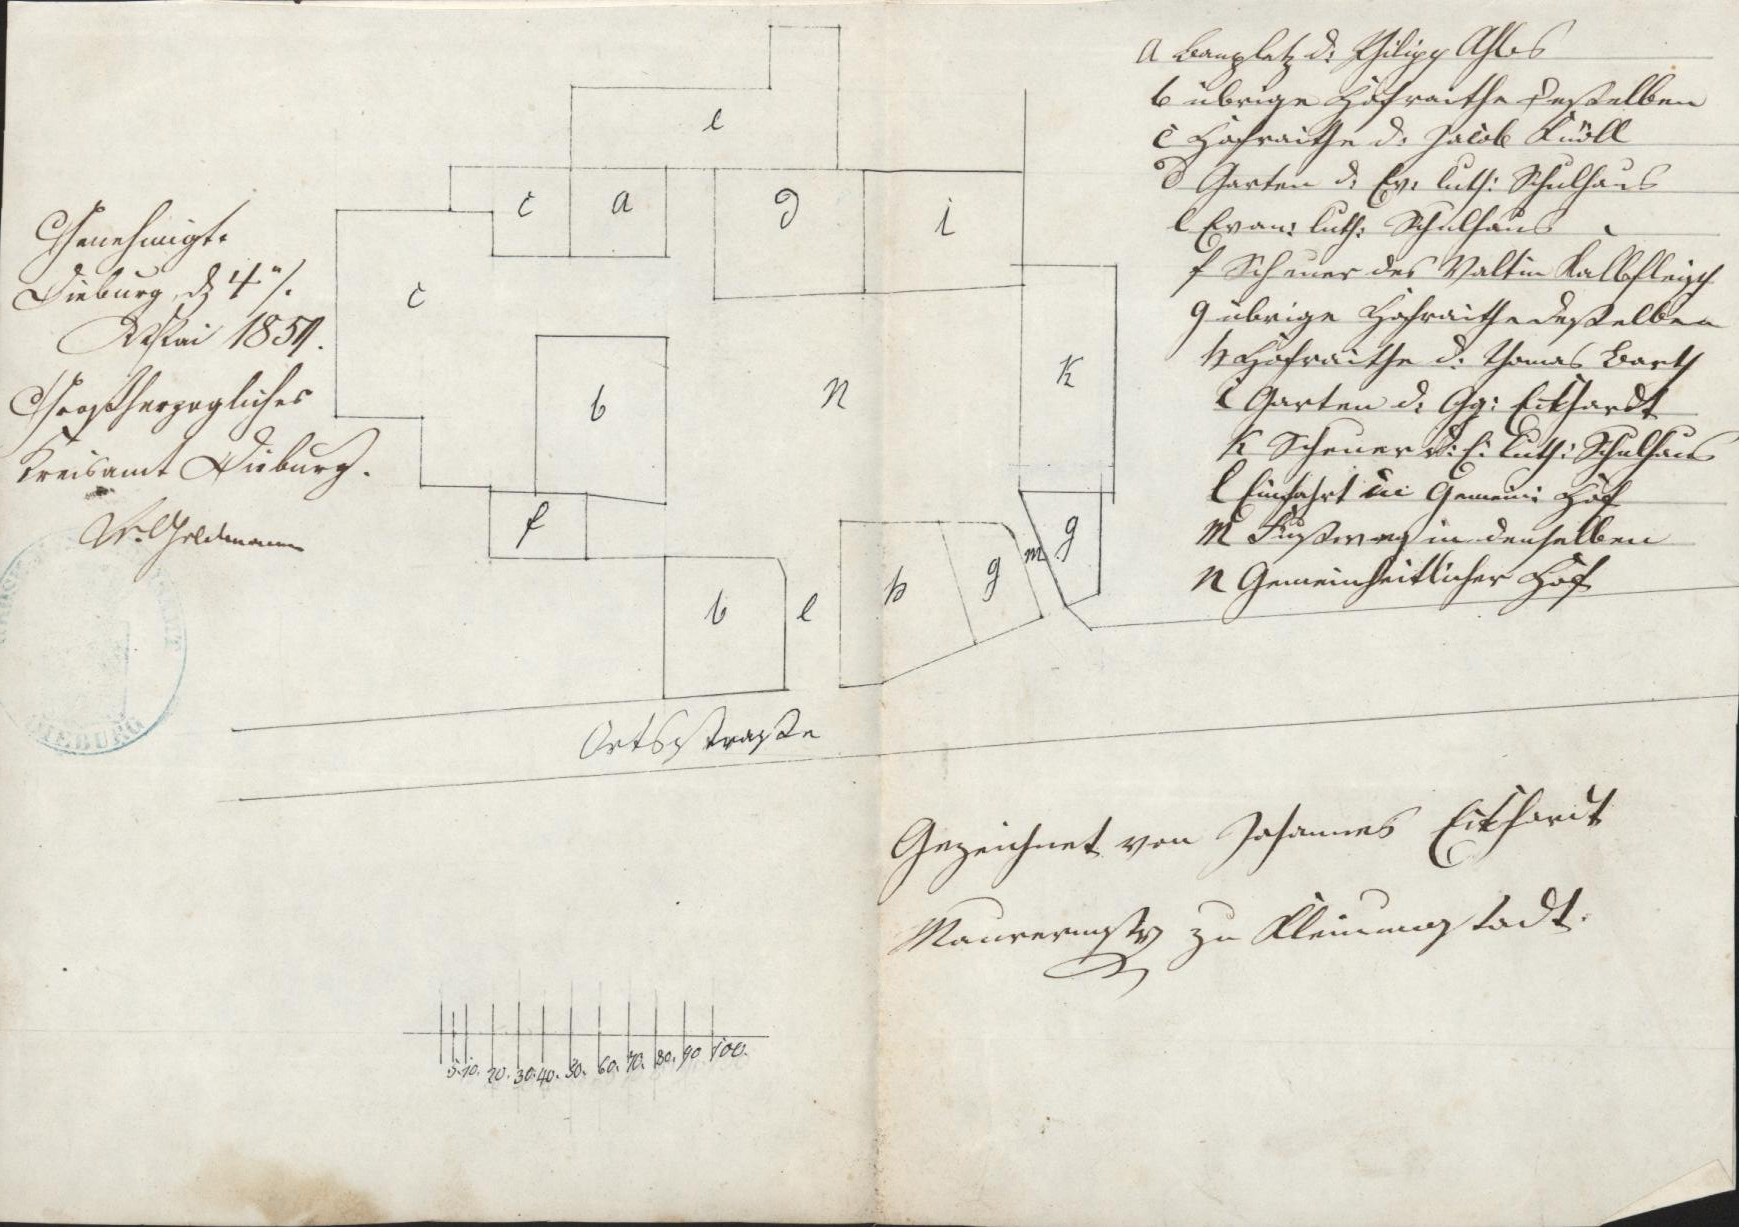 a Bauplatz d: Philipp Ahles
b übrige Hofraithe desselben
c Hofraithe d: Jacob Knöll
d Garten d: Ev: luth: Schulhaus
e Evan: luth: Schulhaus
f Scheuer des Valtin Kalbfleisch
g übrige Hofraithe desselben
h Hofraithe d: Thomas Barth
i Garten d: Gg: Eckhardt
K Scheuer d: E: luth: Schulhaus
l Einfahrt in Gemein: Hof
m Fußweg in denselben
n Gemeinheitlicher Hof
Genehmigt.
Dieburg, d 4"/.
Mai 1859.
Großherzogliches
Kreisamt Dieburg.
e
c
a
d
i
c
b
n
K
f
b
l
h
g
m
g
Ortsstraße
DIEBURG
Gezeichnet von Johannes Eckhardt
Maurermstr zu Kleinumstadt.
5. 10. 20. 30. 40. 50. 60. 70. 80. 90 100.